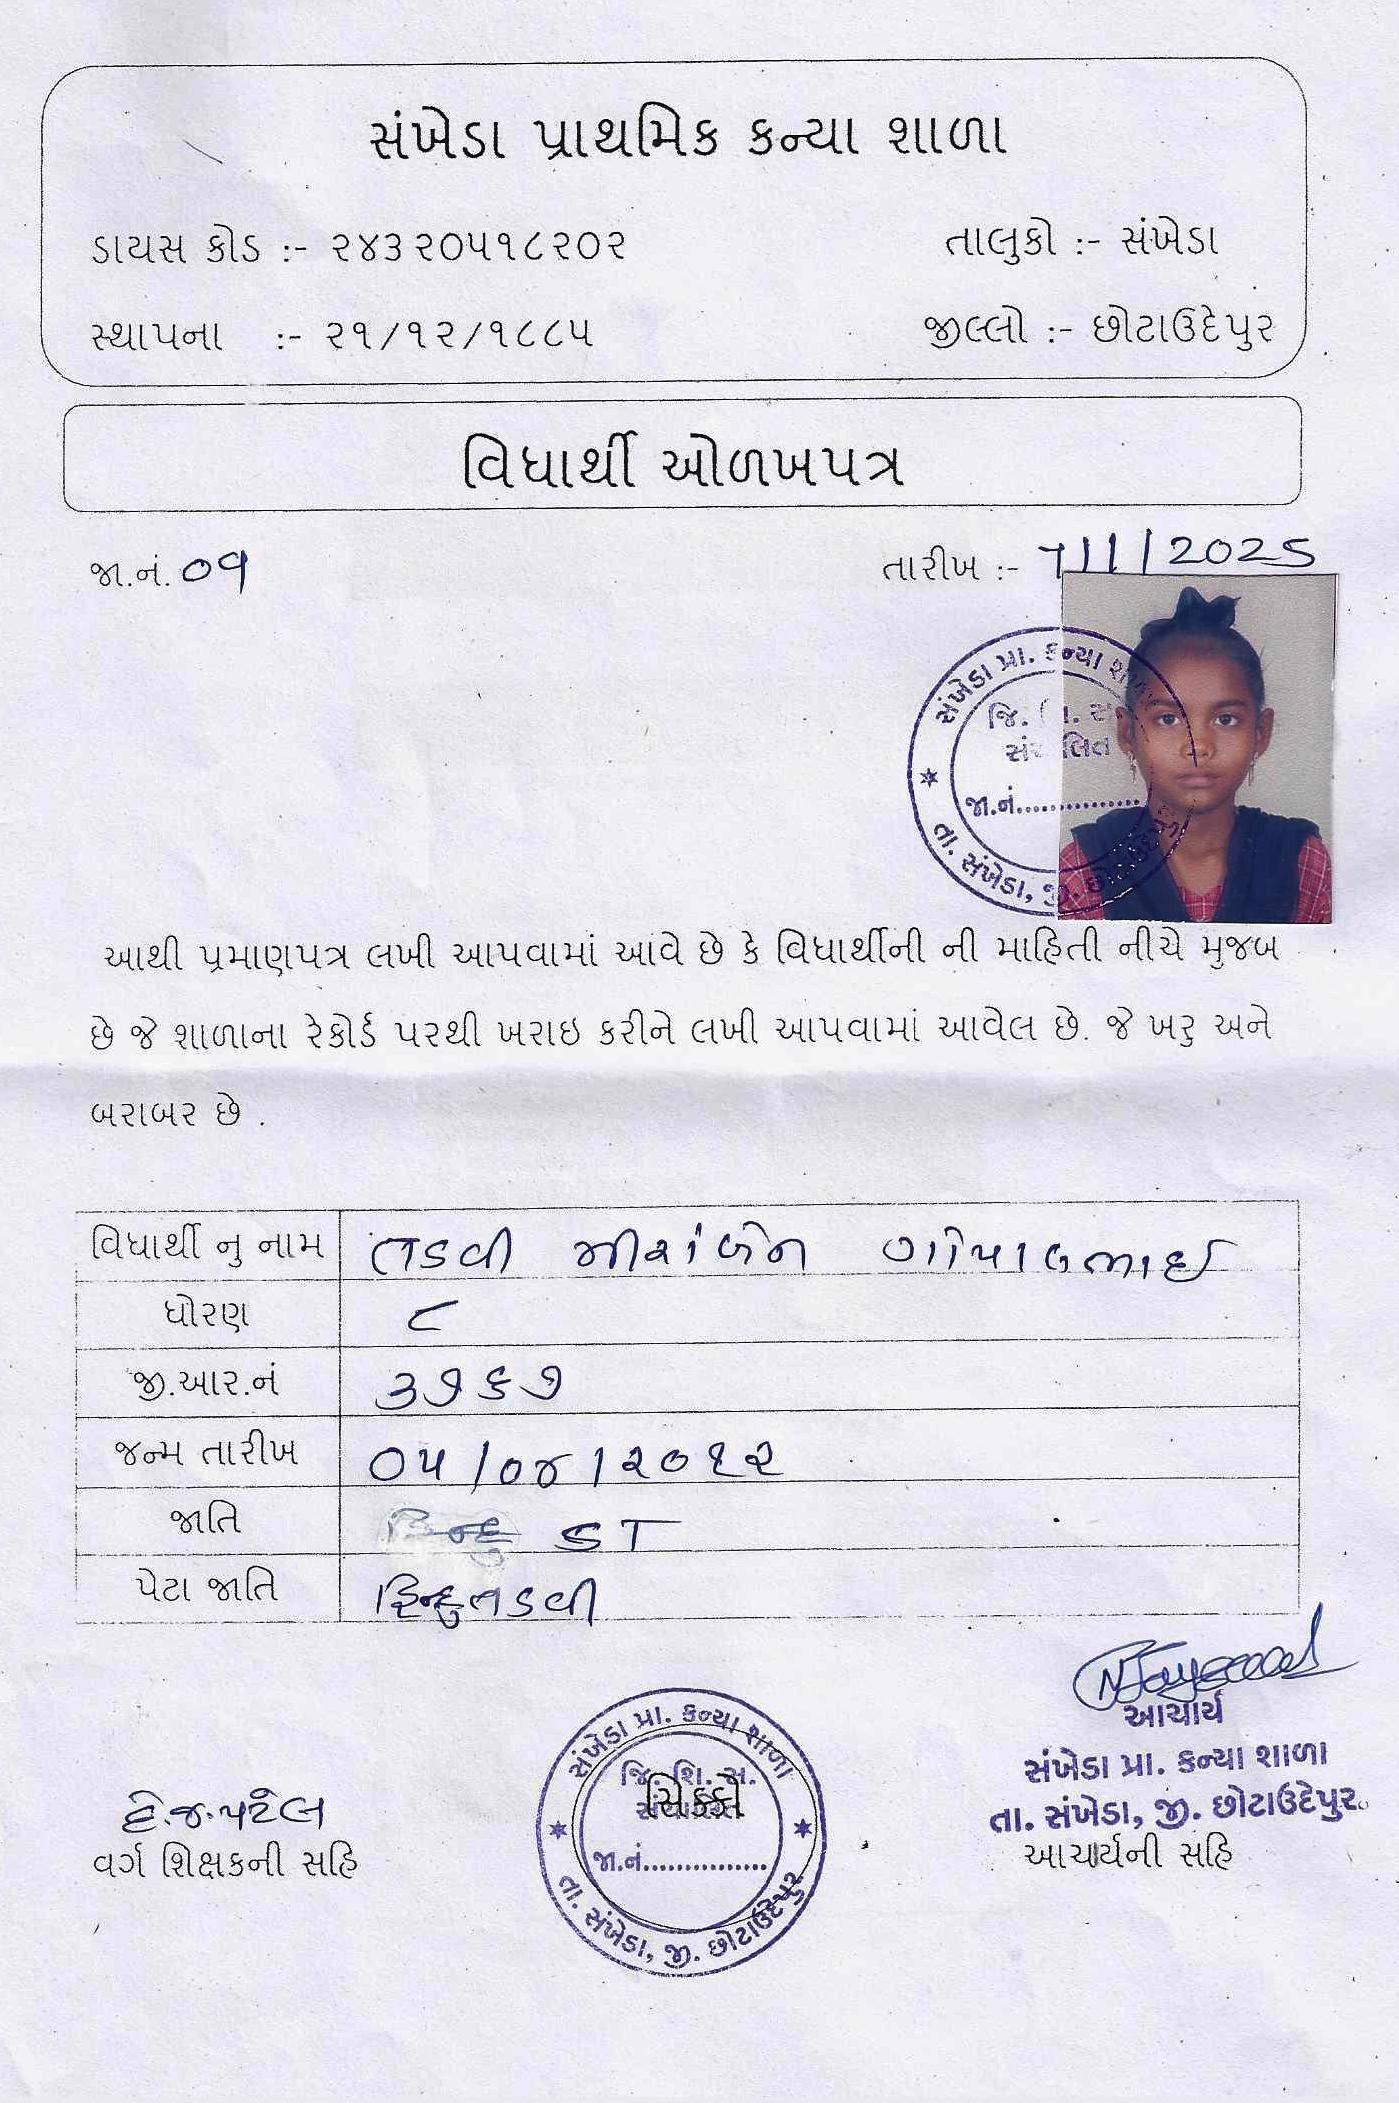 સંખેડા પ્રાથમિક કન્યા શાળા
ડાયસ કોડ :- ૨૪૩૨૦૫૧૮૨૦૨ તાલુકો :- સંખેડા
સ્થાપના :- ૨૧/૧૨/૧૮૮૫ જીલ્લો :- છોટાઉદેપુર
વિધાર્થી ઓળખપત્ર
જા.નં. ૦૧ તારીખ :- ૧/1/2025
સંખેડા પ્રા. કન્યા શાળા
જિ. શિ. સ.
સંચાલિત
જા.નં...............
તા. સંખેડા, જી. છોટાઉદેપુર
આથી પ્રમાણપત્ર લખી આપવામાં આવે છે કે વિધાર્થીની ની માહિતી નીચે મુજબ
છે જે શાળાના રેકોર્ડ પરથી ખરાઇ કરીને લખી આપવામાં આવેલ છે. જે ખરુ અને
બરાબર છે .
વિધાર્થી નુ નામ તડવી મીરાંબેન ગોપાલભાઈ
ધોરણ ૮
જી.આર.નં ૩૭૬૭
જન્મ તારીખ ૦૫/૦૪/૨૦૧૨
જાતિ હિન્દુ ST
પેટા જાતિ હિન્દુતડવી
આચાર્ય
સંખેડા પ્રા. કન્યા શાળા
તા. સંખેડા, જી. છોટાઉદેપુર.
આચાર્યની સહિ
સંખેડા પ્રા. કન્યા શાળા
જિ. શિ. સ.
સંચાલિત
સિક્કો
જા.નં...............
તા. સંખેડા, જી. છોટાઉદેપુર
હે.જ.પટેલ
વર્ગ શિક્ષકની સહિ